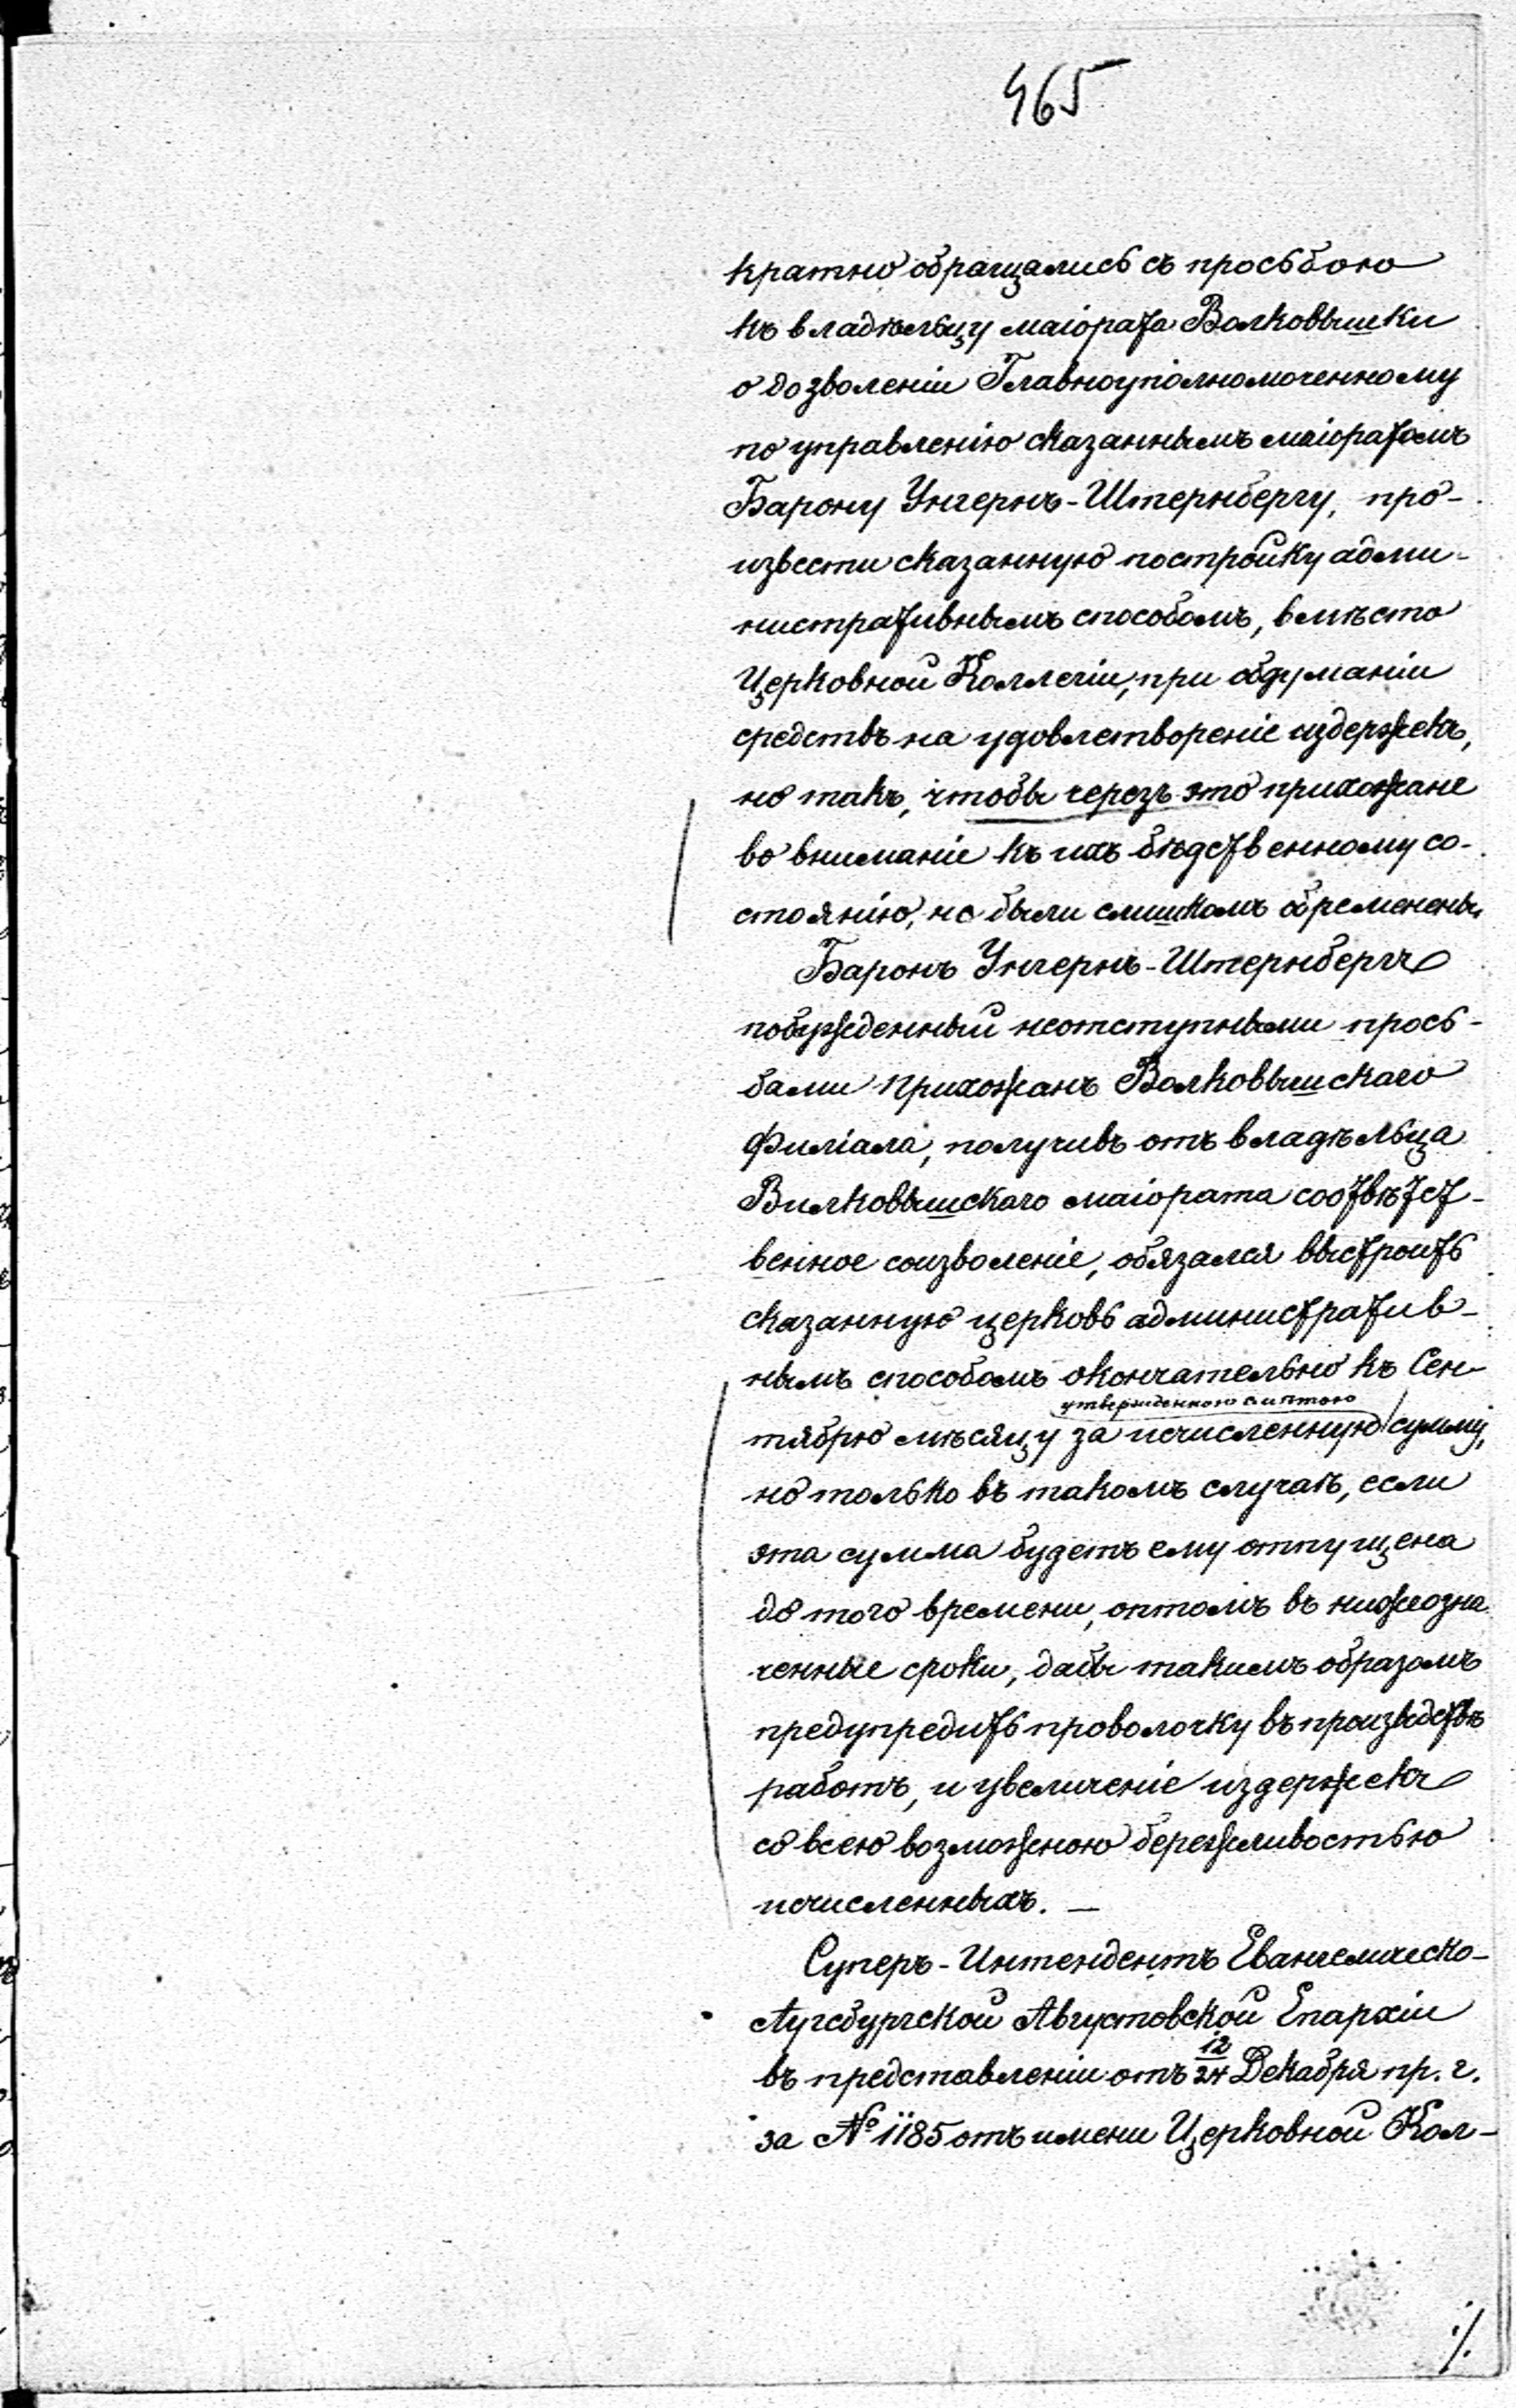 465
кратно обращались съ просьбою
къ владѣльцу маіората Волковышки
о дозволеніи Главноуполномоченному
по управленію сказаннымъ маіоратомъ
Барону Унгернъ-Штернбергу, про-
извести сказанную постройку адми-
нистративнымъ способомъ, вмѣсто
Церковной Коллегіи, при обдуманіи
средствъ на удовлетвореніе издержекъ,
но такъ, чтобы черезъ это прихожане
во вниманіе къ ихъ бѣдственному со-
стоянію, не были слишкомъ обременены
Баронъ Унгернъ-Штернбергъ
побужденный неотступными прось-
бами прихожанъ Волковышскаго
Филіала, получивъ отъ владѣльца
Вилковышскаго маіората соотвѣтст-
венное соизволеніе, обязался выстроить
сказанную церковь административ-
нымъ способомъ окончательно къ Сен-
утвержденною смѣтою
тябрю мѣсяцу за исчисленную сумму,
но только въ такомъ случаѣ, если
эта сумма будетъ ему отпущена
до того времени, оптомъ въ нижеозна
ченные сроки, дабы такимъ образомъ
предупредить проволочку въ производствѣ
работъ, и увеличеніе издержекъ
со всею возможною бережливостью
исчисленныхъ. —
Суперъ-Интендентъ Евангелическо-
Аугсбургской Августовской Епархіи
въ представленіи отъ 12/24 Декабря пр. г.
за № 1185 отъ имени Церковной Кол-
./.